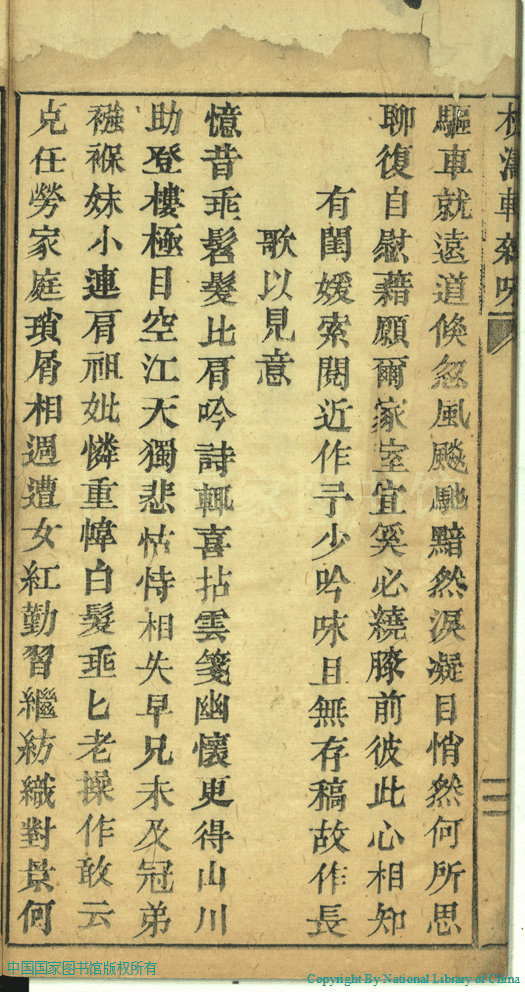 驅車就遠道倏忽風飈馳黯然淚凝目悄然何所思
聊復自慰藉願爾家室宜奚必繞膝前彼此心相知
有閨媛索閱近作予少吟咏且無存稿故作長
歌以見意
憶昔垂髫髮比肩吟詩輒喜拈雲箋幽懷更得山川
助登樓極目空江天獨悲怙恃相失早兄未及冠弟
襁褓妹小連肩祖妣憐重幃白髮垂匕老操作敢云
克任勞家庭瑣屑相週遭女紅勤習繼紡織對景何
二
中国国家图书馆版权所有
Copyright By National Library of China